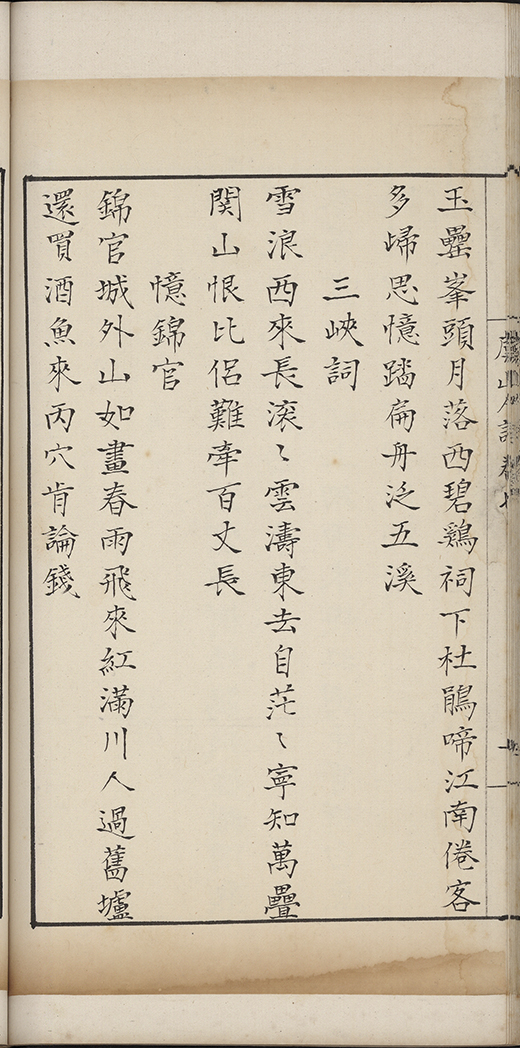 玉壘峯頭月落西碧鷄祠下杜鵑啼江南倦客
多歸思憶踏扁舟泛五溪
三峽詞
雪浪西來長滚〻雲濤東去自茫〻寧知萬疊
関山恨比侶難牽百丈長
憶錦官
錦官城外山如畫春雨飛來紅滿川人過舊壚
還買酒魚來丙穴肯論錢